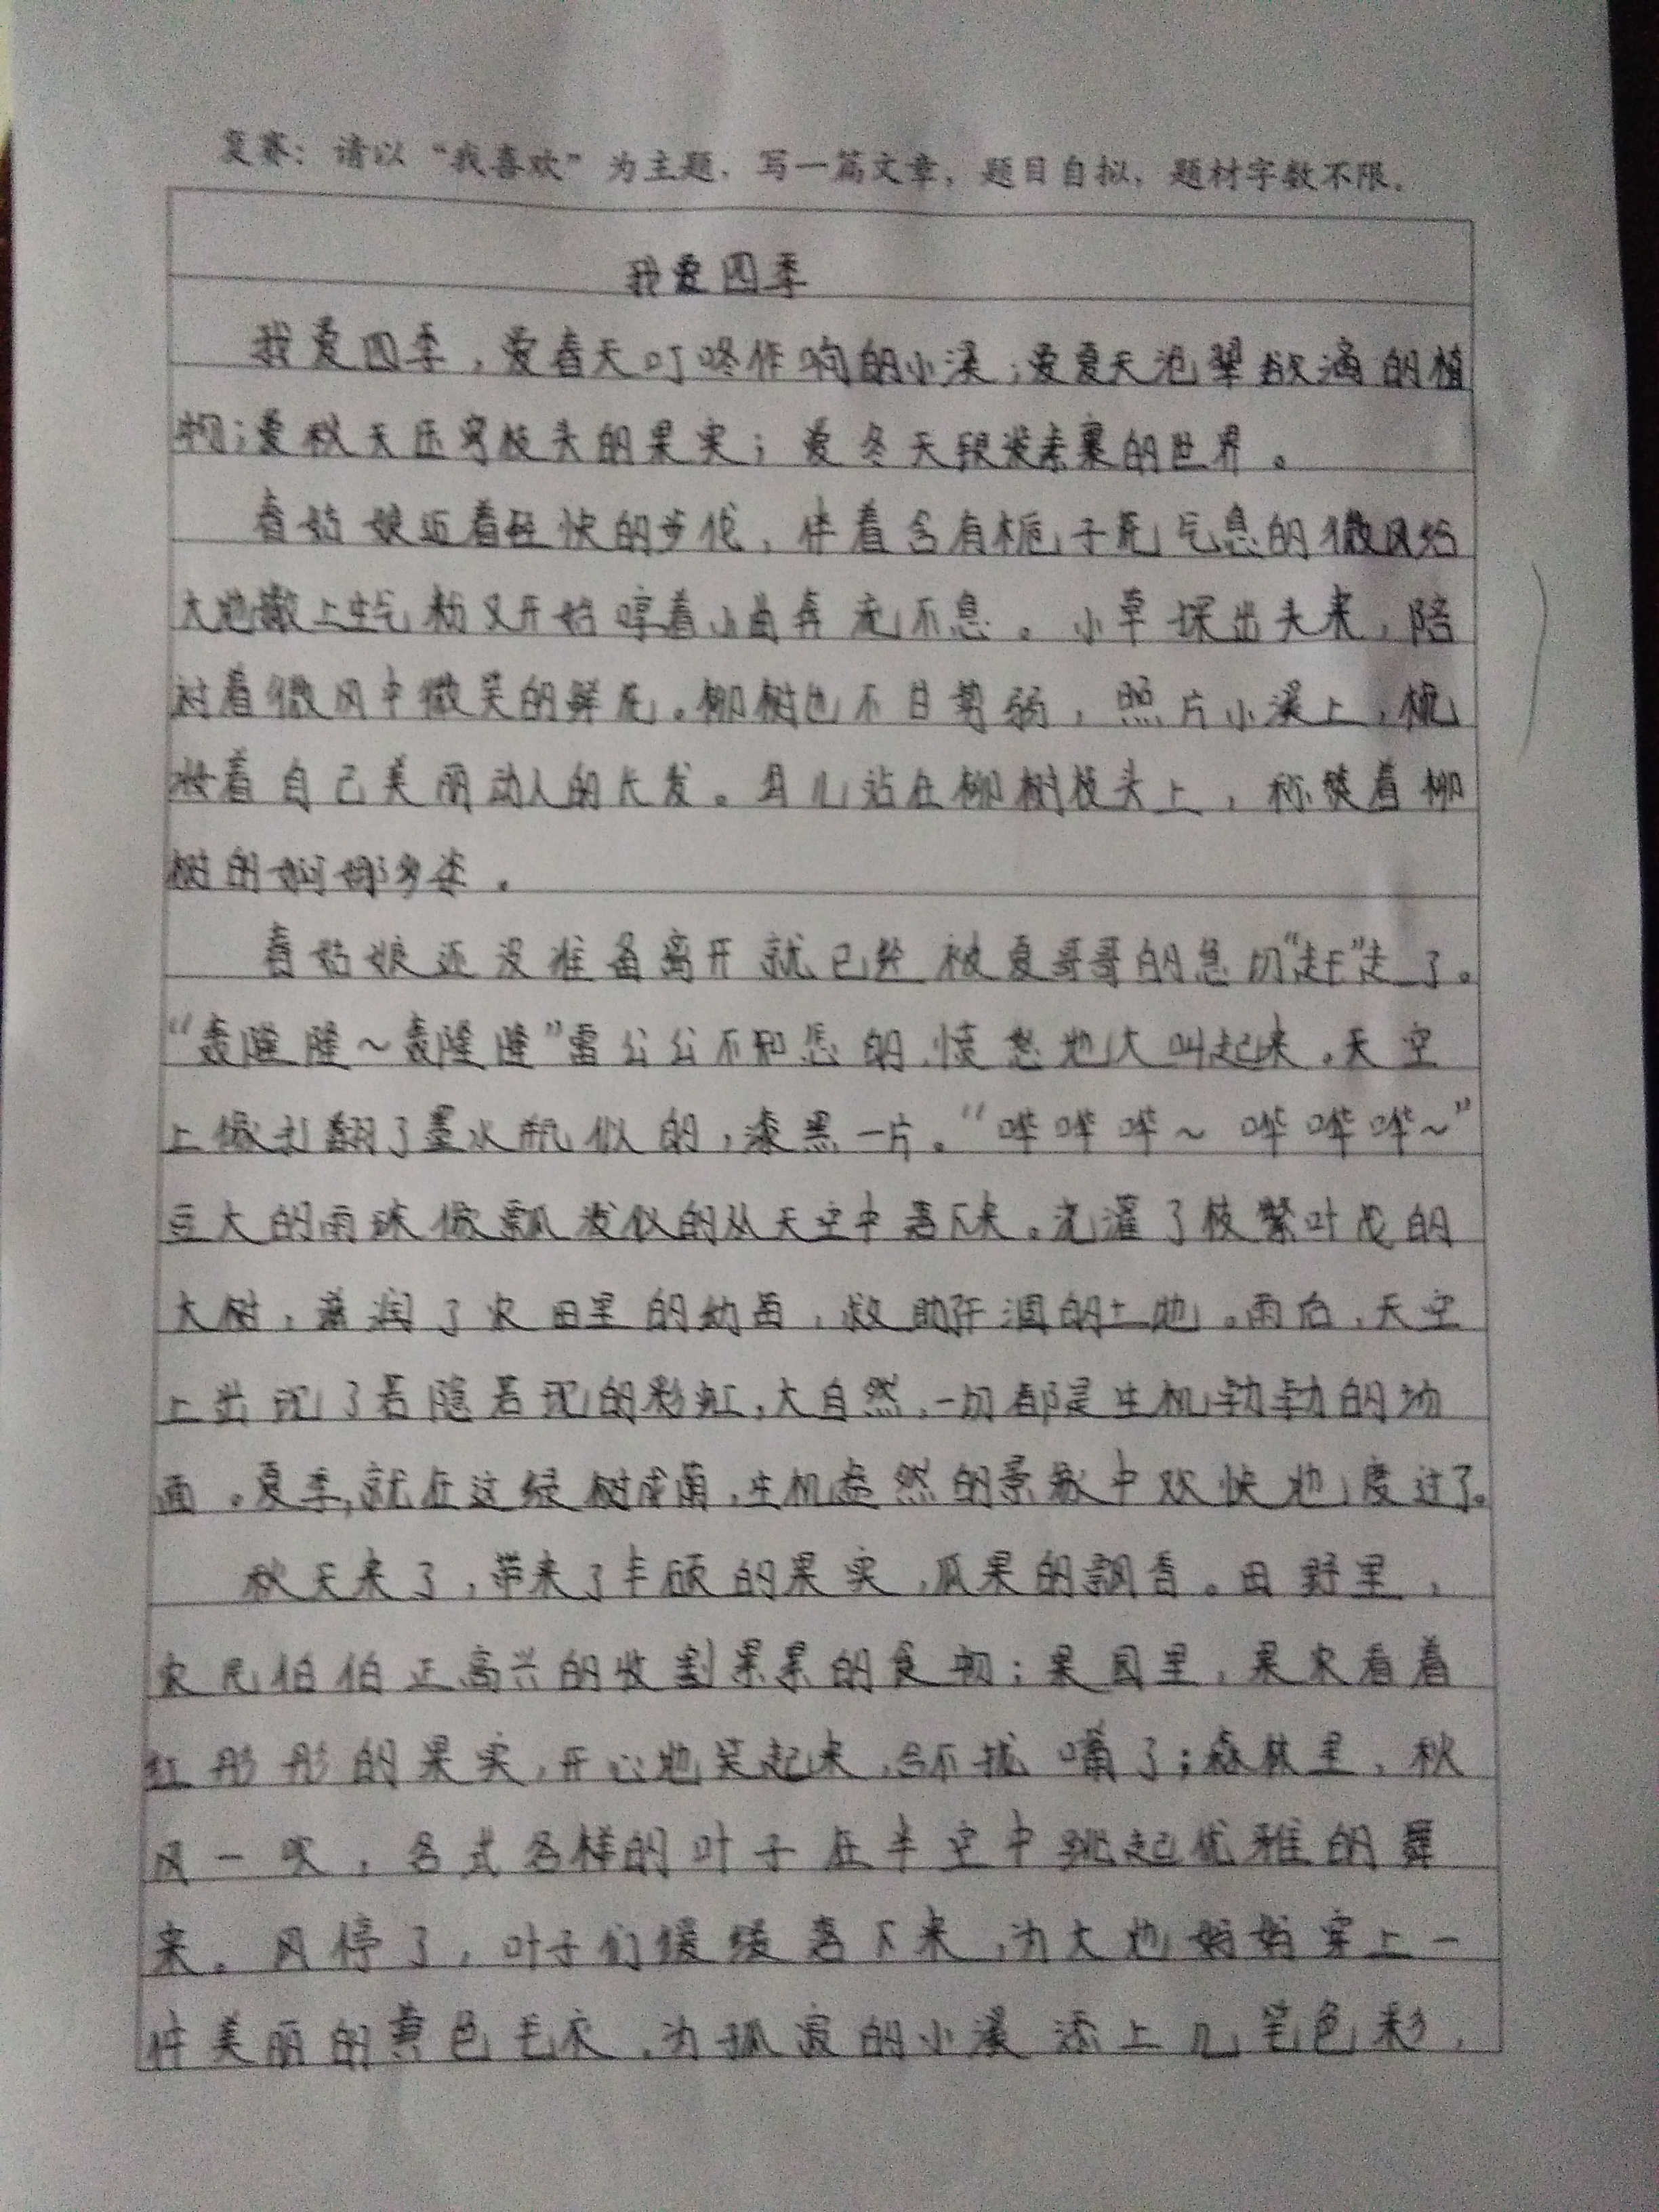 复赛：请以“我喜欢”为主题，写一篇文章，题目自拟，题材字数不限。
我爱四季
我爱四季，爱春天叮咚作响的小溪；爱夏天沧翠欲滴的植
物；爱秋天压弯枝头的果实；爱冬天银装素裹的世界。
春姑娘迈着轻快的步伐，伴着含有栀子花气息的微风给
大地撒上生气粉又开始哼着小曲奔流不息。小草探出头来，陪
衬着微风中微笑的鲜花。柳树也不甘势弱，照片小溪上，梳
妆着自己美丽动人的长发。鸟儿站在柳树枝头上，称赞着柳
树的婀娜多姿。
春姑娘还没准备离开就已经被夏哥哥的急切“赶”走了。
“轰隆隆～轰隆隆”雷公公不知怎的，愤怒地大叫起来。天空
上像打翻了墨水瓶似的，漆黑一片。“哗哗哗～哗哗哗～”
豆大的雨珠像瓢泼似的从天空中落下来。浇灌了枝繁叶茂的
大树，滋润了农田里的幼苗，救助干涸的土地。雨后，天空
上出现了若隐若现的彩虹，大自然，一切都是生机勃勃的场
面。夏季，就在这绿树成荫，生机盎然的景象中欢快地度过了。
秋天来了，带来了丰硕的果实，瓜果的飘香。田野里，
农民伯伯正高兴的收割累累的食物；果园里，果农看着
红彤彤的果实，开心地笑起来，合不拢嘴了；森林里，秋
风一吹，各式各样的叶子在半空中跳起优雅的舞
来。风停了，叶子们缓缓落下来，为大地妈妈穿上一
件美丽的黄色毛衣，为孤寂的小溪添上几笔色彩，